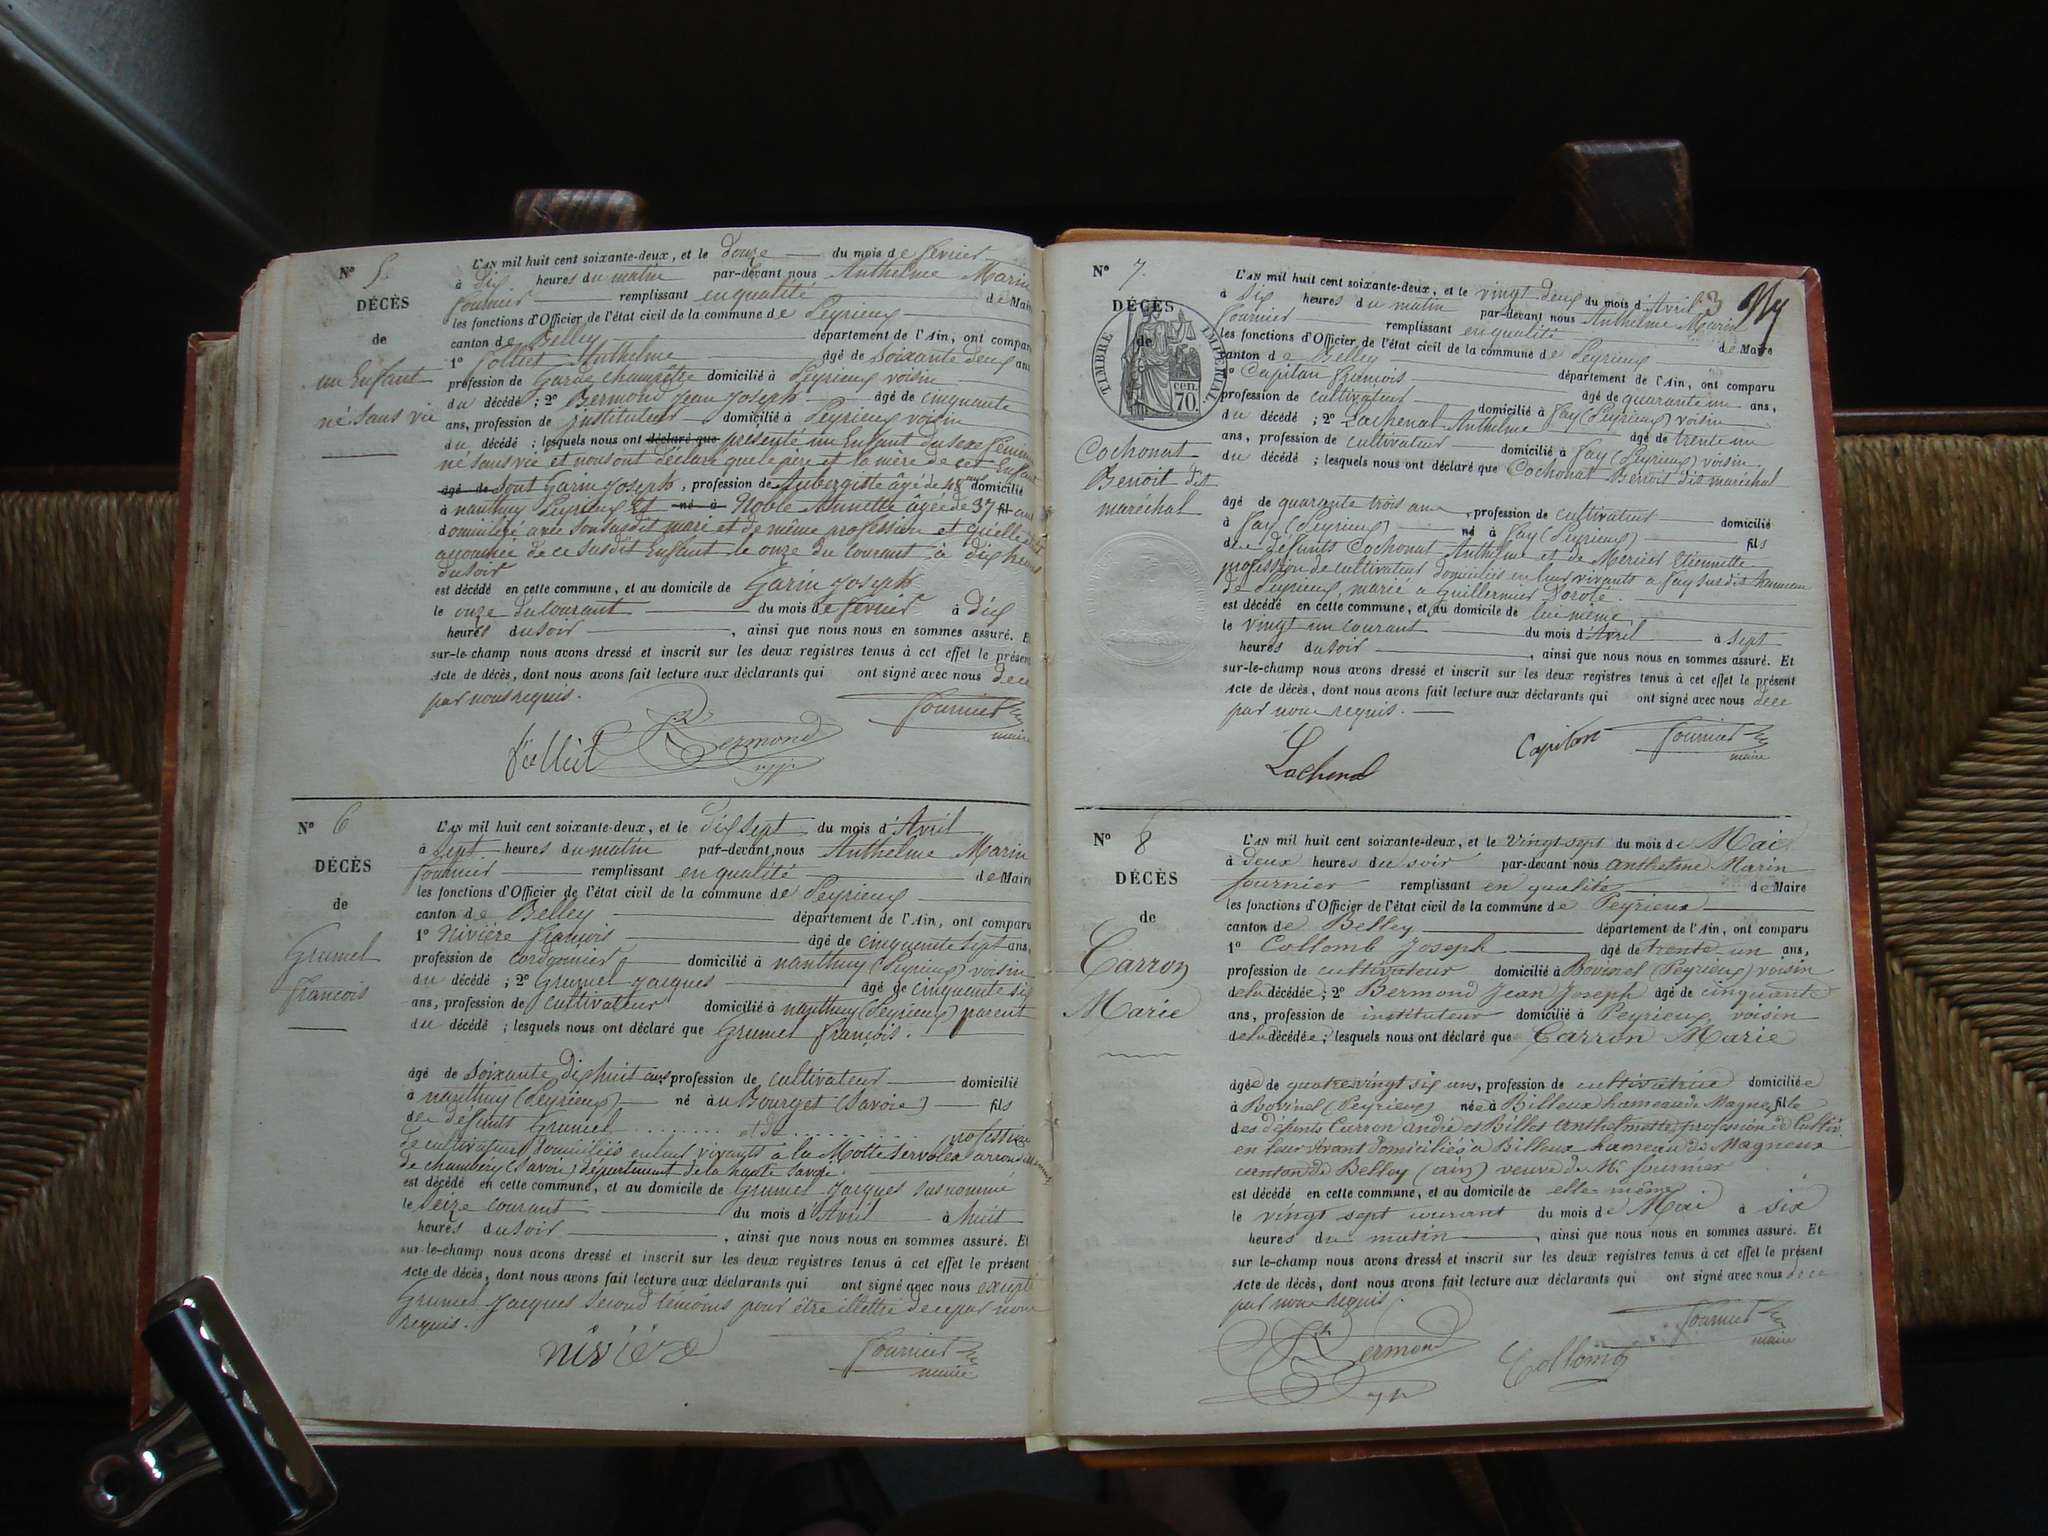 N° 5.
DÉCÈS
de
un Enfant
né sans vie
L'AN mil huit cent soixante-deux, et le douze du mois de février
à dix heures du matin par-devant nous Anthelme Marin
fournier remplissant en qualité de Maire
les fonctions d'Officier de l'état civil de la commune de Peyrieux
canton de Belley département de l'Ain, ont comparu
1° Folliet Anthelme âgé de soixante deux ans
profession de Garde champêtre domicilié à Peyrieux voisin
du décédé ; 2° Bermond Jean Joseph âgé de cinquante
ans, profession de instituteur domicilié à Peyrieux voisin
du décédé ; lesquels nous ont déclaré que présenté un Enfant du sexe féminin
né sans vie et nous ont déclaré que le père et la mère de cet Enfant
âgé de sont Garin Joseph, profession de Aubergiste âgé de 48 ans domicilié
à nanthuy Peyrieux Et né à Noble Annette âgée de 37 fils ans
domiciliée avec son susdit mari et de même profession et qu'elle est
accouchée de ce susdit Enfant le onze du courant à dix heures
du soir
est décédé en cette commune, et au domicile de Garin Joseph
le onze du courant du mois de février à dix
heures du soir , ainsi que nous nous en sommes assuré. Et
sur-le-champ nous avons dressé et inscrit sur les deux registres tenus à cet effet le présent
Acte de décès, dont nous avons fait lecture aux déclarants qui ont signé avec nous de ce
par nous requis.
Folliet Bermond fournier
maire
N° 6
DÉCÈS
de
Grumel
françois
L'AN mil huit cent soixante-deux, et le dix sept du mois d'Avril
à sept heures du matin par-devant nous Anthelme Marin
fournier remplissant en qualité de Maire
les fonctions d'Officier de l'état civil de la commune de Peyrieux
canton de Belley département de l'Ain, ont comparu
1° Nivière françois âgé de cinquante sept ans,
profession de cordonnier domicilié à nanthuy (Peyrieux) voisin
du décédé ; 2° Grumel Jacques âgé de cinquante six
ans, profession de cultivateur domicilié à nanthuy (Peyrieux) parent
du décédé ; lesquels nous ont déclaré que Grumel françois.
âgé de soixante dix huit ans profession de cultivateur domicilié
à nanthuy (Peyrieux) né au Bourget (Savoie) fils
de défunts Grumel ........ et de ............ profession
de cultivateurs domiciliés en leur vivants a la Motte Servolex
de chambéry (Savoie) département de la haute Savoie.
est décédé en cette commune, et au domicile de Grumel Jacques susnommé
le seize courant du mois d'Avril à huit
heures du soir , ainsi que nous nous en sommes assuré. Et
sur-le-champ nous avons dressé et inscrit sur les deux registres tenus à cet effet le présent
Acte de décès, dont nous avons fait lecture aux déclarants qui ont signé avec nous excepté
Grumel Jacques second témoins pour être illettré de ce par nous
requis.
nivière fournier
maire
3
N° 7.
DÉCÈS
de
TIMBRE IMPÉRIAL.
70 cen.
Cochonat
Benoit dit
maréchal
L'AN mil huit cent soixante-deux, et le vingt deux du mois d'Avril
à six heures du matin par-devant nous Anthelme Marin
fournier remplissant en qualité de Maire
les fonctions d'Officier de l'état civil de la commune de Peyrieux
canton de Belley département de l'Ain, ont comparu
1° Capitan françois âgé de quarante un ans,
profession de cultivateur domicilié à Fay (Peyrieux) voisin
du décédé ; 2° Lachenal Anthelme âgé de trente un
ans, profession de cultivateur domicilié à Fay (Peyrieux) voisin
du décédé ; lesquels nous ont déclaré que Cochonat Benoit dit maréchal
âgé de quarante trois ans, profession de cultivateur domicilié
à Fay (Peyrieux) né à Fay (Peyrieux) fils
de défunts Cochonat Anthelme et de Mercier Etiennette
profession de cultivateur domiciliés en leur vivants a Fay susdit hameau
de Peyrieux, marié a Guillermier Dorote.
est décédé en cette commune, et au domicile de lui même
le vingt un courant du mois d'Avril à sept
heures du soir , ainsi que nous nous en sommes assuré. Et
sur-le-champ nous avons dressé et inscrit sur les deux registres tenus à cet effet le présent
Acte de décès, dont nous avons fait lecture aux déclarants qui ont signé avec nous de ce
par nous requis.
Lachenal Capitan fournier
maire
N° 8
DÉCÈS
de
Carron
Marie
L'AN mil huit cent soixante-deux, et le vingt sept du mois de Mai
à deux heures du soir par-devant nous Anthelme Marin
fournier remplissant en qualité de Maire
les fonctions d'Officier de l'état civil de la commune de Peyrieux
canton de Belley département de l'Ain, ont comparu
1° Collomb Joseph âgé de trente un ans,
profession de cultivateur domicilié à Bovinel (Peyrieux) voisin
de la décédée ; 2° Bermond Jean Joseph âgé de cinquante
ans, profession de instituteur domicilié à Peyrieux voisin
de la décédée ; lesquels nous ont déclaré que Carron Marie
âgée de quatre vingt six ans, profession de cultivatrice domiciliée
à Bovinel (Peyrieux) née à Billeux hameau de Magneux fille
des défunts Carron andré et Billet anthelmette profession de Cultiv.
en leur vivant domiciliés à Billeux hameau de Magneux
canton de Belley (ain) veuve de Mr fournier
est décédé en cette commune, et au domicile de elle même
le vingt sept courant du mois de Mai à six
heures du matin , ainsi que nous nous en sommes assuré. Et
sur-le-champ nous avons dressé et inscrit sur les deux registres tenus à cet effet le présent
Acte de décès, dont nous avons fait lecture aux déclarants qui ont signé avec nous de ce
par nous requis.
Bermond Collomb fournier
maire